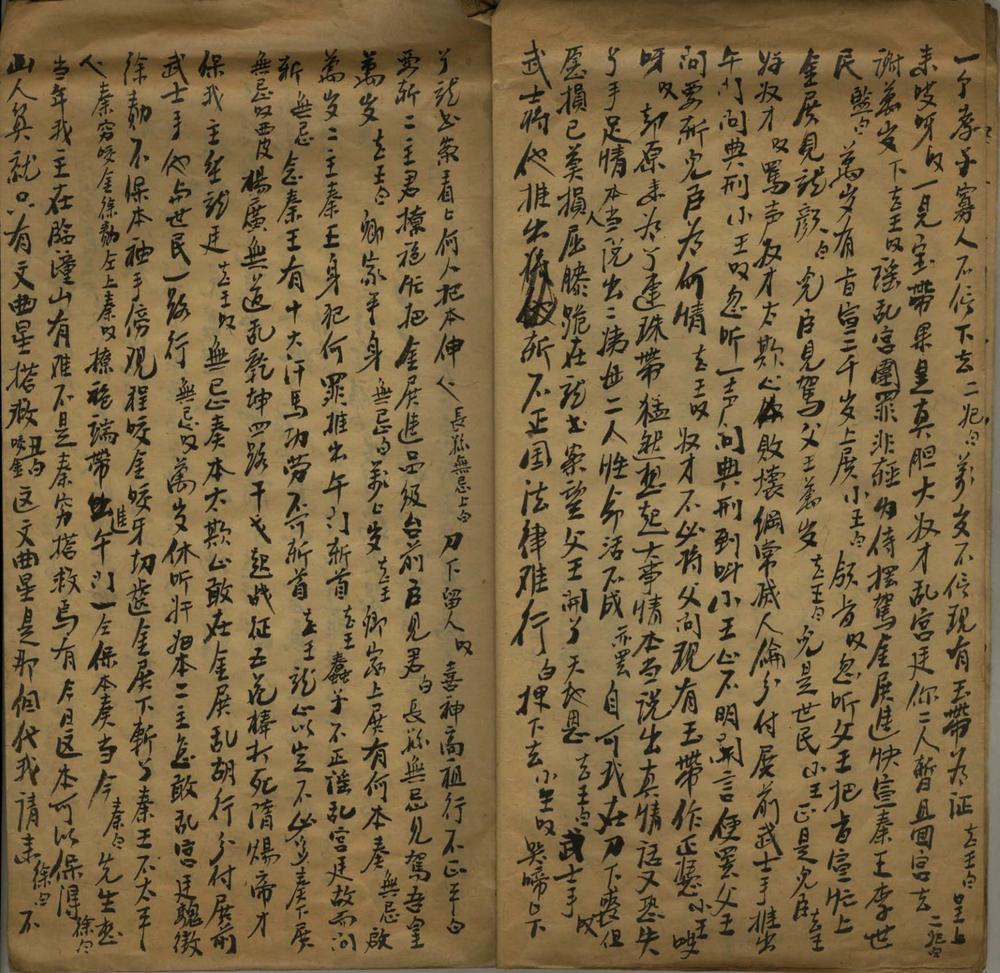 一子李子寡人不信下去二妃白万岁不信现有玉带为证老王白呈上
来叹呀叹一见宝带果是真胆大奴才乱宫廷你二人暂且回宫去二妃白
谢万岁下去王叹谣乱宫围罪非轻内侍摆驾金展进快宣秦王李世
民监白万岁有旨宣二千岁上展小王白领旨叹忽听父王把旨宣忙上
金展见龙颜白儿臣见驾父王万岁老王白儿是世民小王正是儿臣老王
好奴才叹骂声奴才太欺心败坏纲常灭人伦分付展前武士手推出
午门问典刑小王叹忽听一声问典刑到叫小王心不明开言便罢父王
问要斩儿臣为何情老王叹奴才不必将父问现有玉带作正凭小王叹
呀叹却原来为了连珠带猛然想起大事情本当说出真情话又恐失
了手足情本当说出二姨母二人性命活不成罢自可我在刀下丧但
愿损己莫损人屈膝跪在龙书案望父王开了天地恩老王白武士手叹
武士将他推出斩不正国法律难行白押下去小王叹哭啼白下
了龙书案看上何人把本伸人長孫無忌上白刀下留人叹喜神高祖行不正平白
要斩二主君撩袍忙把金展进品级台前臣见君白長孫無忌见驾吾皇
萬岁老王白卿家平身無忌白萬岁老王卿家上展有何本奏無忌啟
萬岁二主秦王身犯何罪推出午门斩首老王蠢子不正谣乱宫廷故而问
斩無忌念秦王有十大汗马功劳不可斩首老王龙心以定不必多奏下展
無忌叹西皮楊廣無道乱乾坤四路干戈起战征五花棒打死隋煬帝才
保我主坐龙廷老王叹無忌奏本太欺心敢在金展乱胡行分付展前
武士手他与世民一路行無忌叹萬岁休听奸妃本二主怎敢乱宫廷魏徵
徐勣不保本袖手傍观程咬金咬牙切齿金展下斬了秦王不太平
人秦穷咬金徐勣仝上秦叹撩袍端带進午门一仝保本奏当今秦白先生想
当年我王在临潼山有难不是秦穷搭救焉有今日这本可以保得徐白
山人算就只有文曲星搭救咬金丑白这文曲星是那個代我请来徐白不